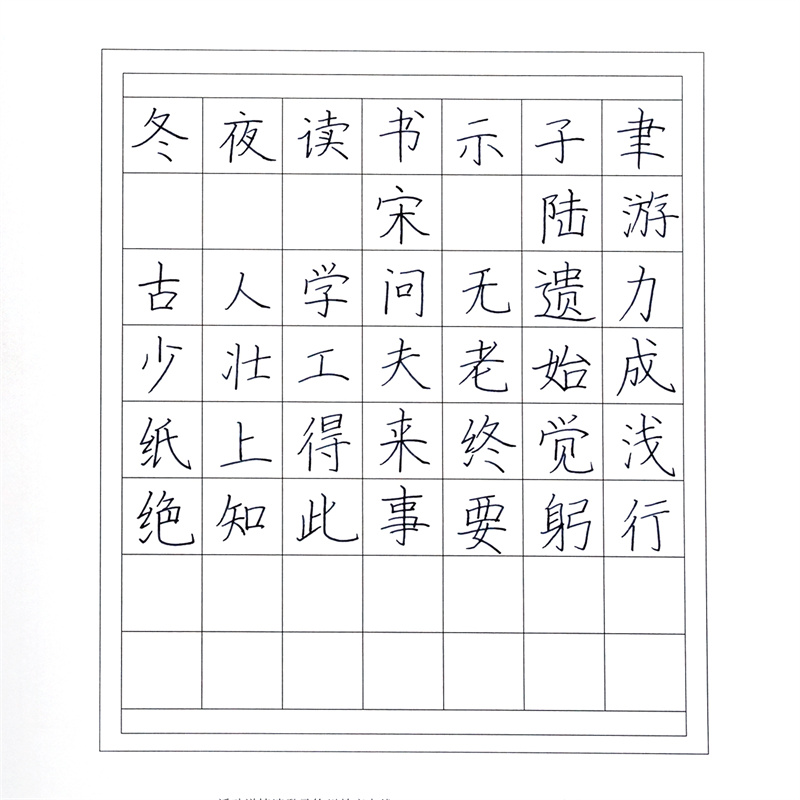 冬夜读书示子聿
宋 陆游
古人学问无遗力
少壮工夫老始成
纸上得来终觉浅
绝知此事要躬行